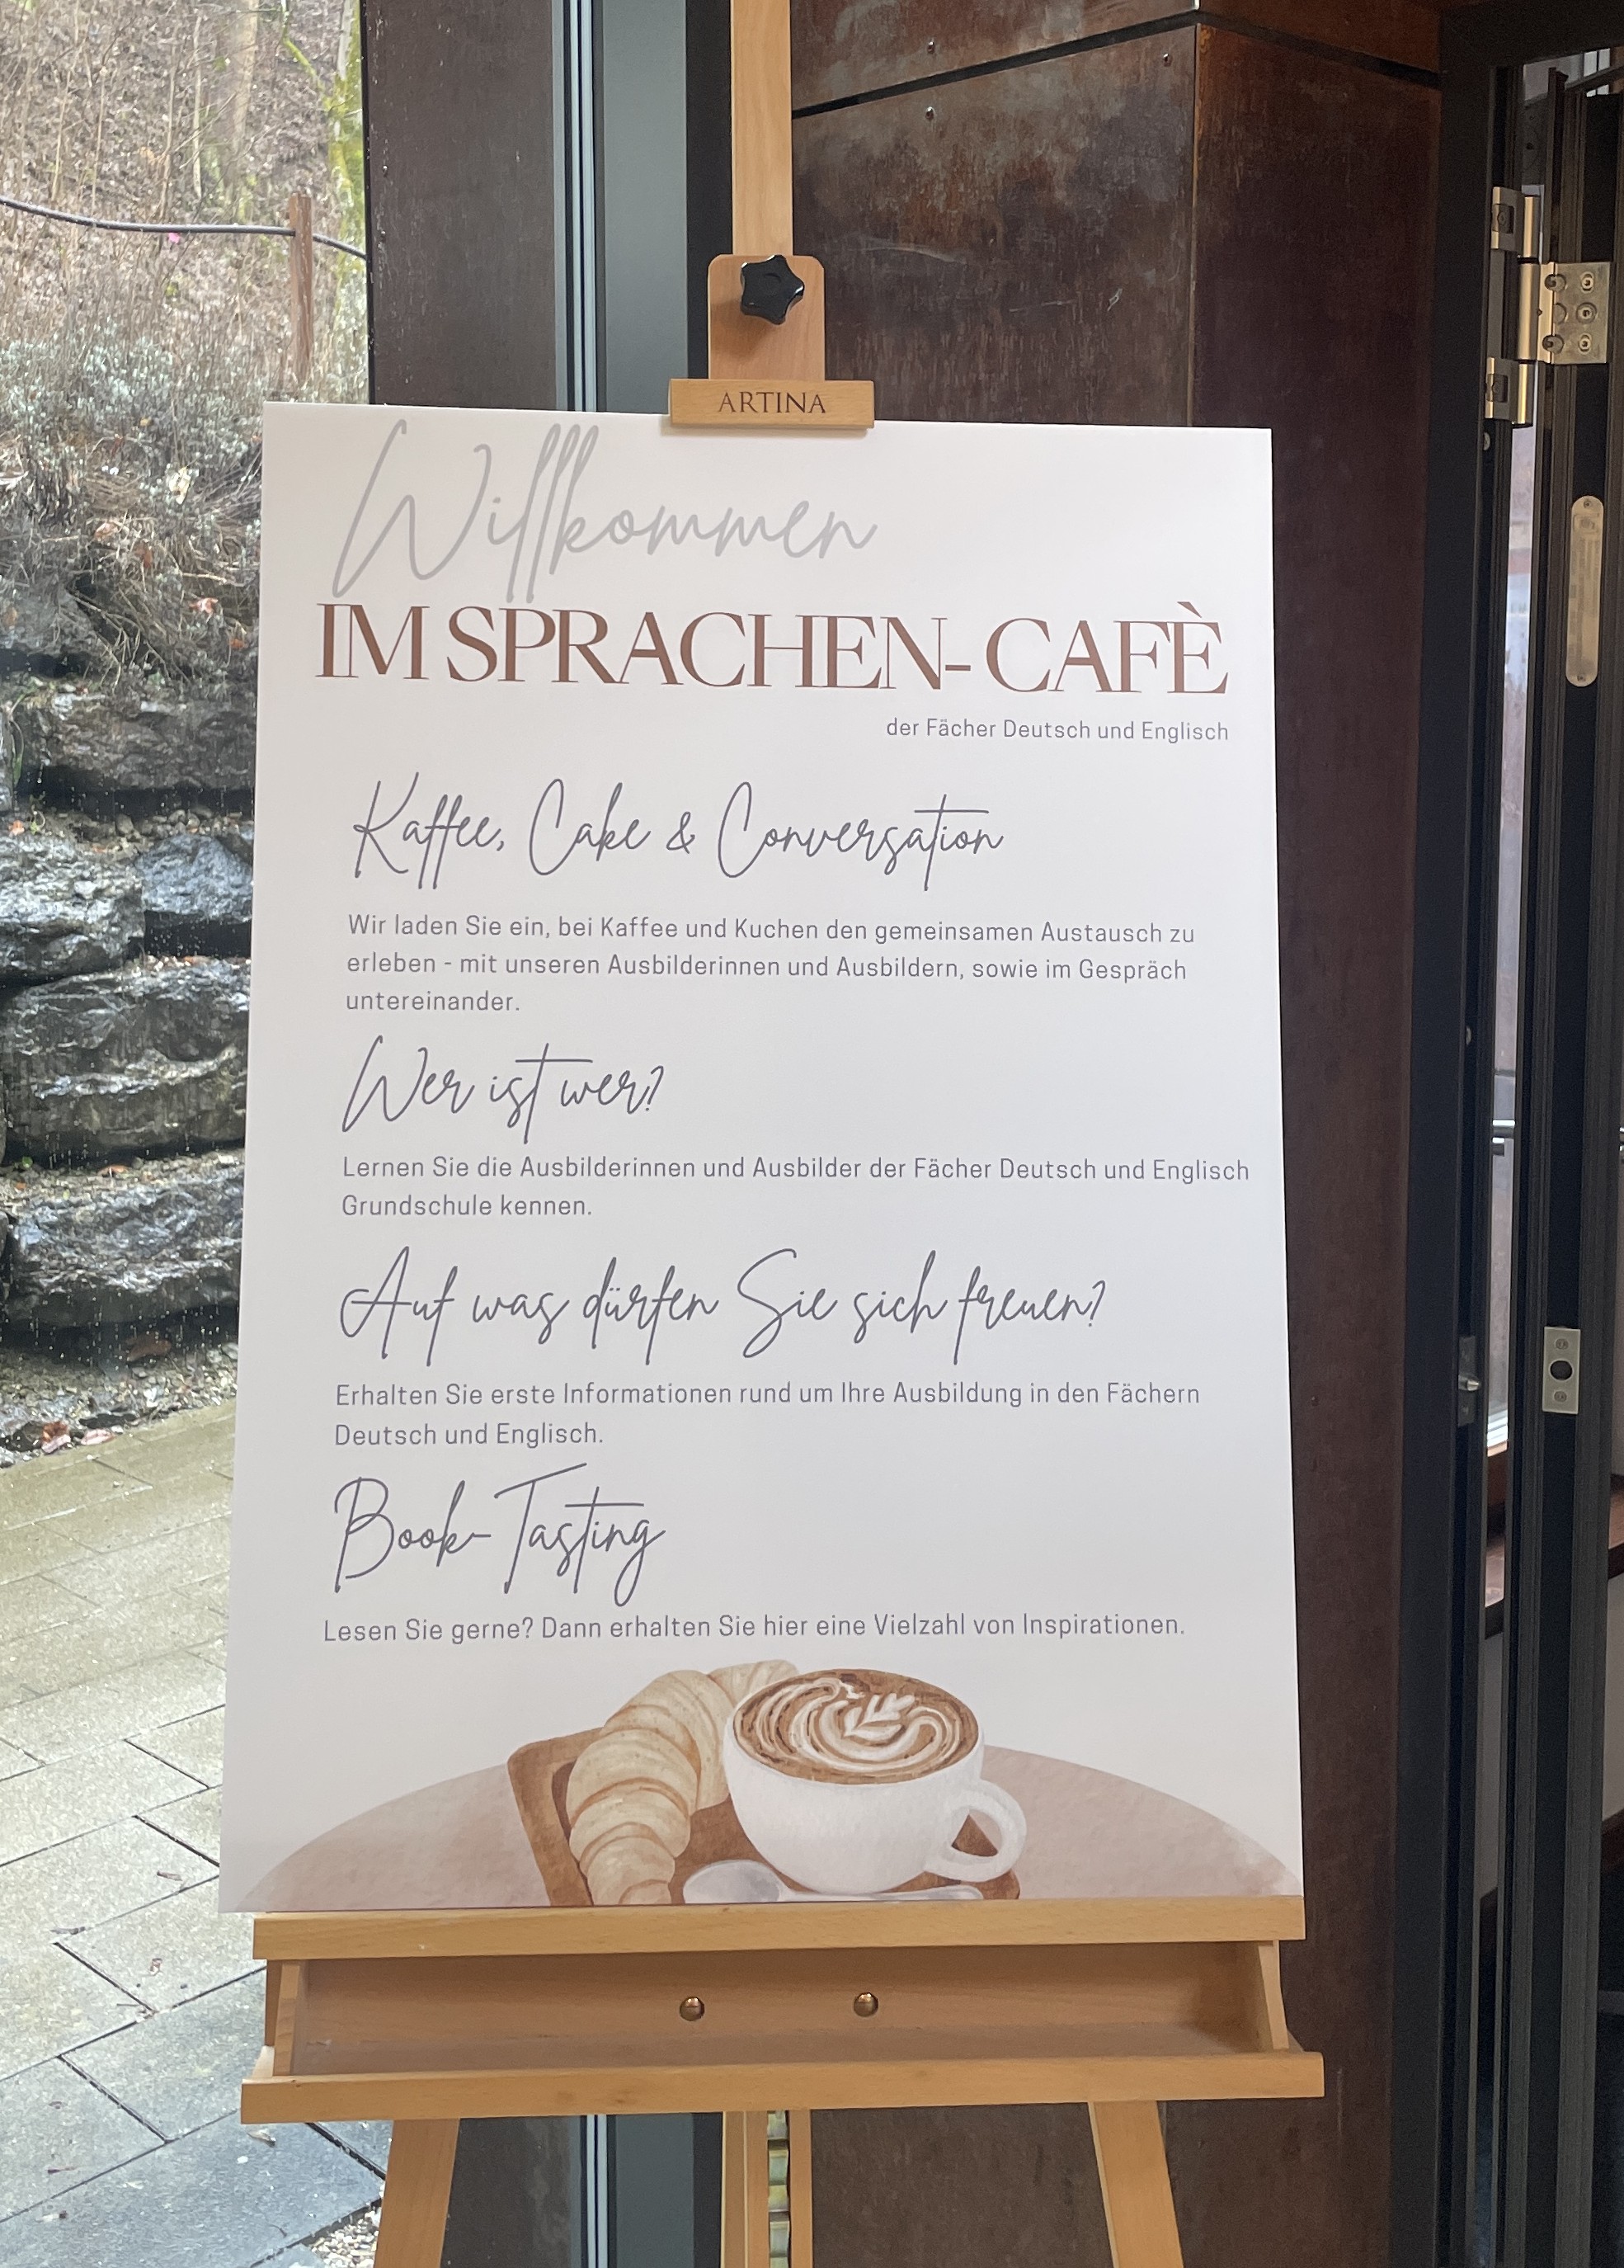 ARTINA
Willkommen
IM SPRACHEN-CAFÈ
der Fächer Deutsch und Englisch
Kaffee, Cake & Conversation
Wir laden Sie ein, bei Kaffee und Kuchen den gemeinsamen Austausch zu
erleben - mit unseren Ausbilderinnen und Ausbildern, sowie im Gespräch
untereinander.
Wer ist wer?
Lernen Sie die Ausbilderinnen und Ausbilder der Fächer Deutsch und Englisch
Grundschule kennen.
Auf was dürfen Sie sich freuen?
Erhalten Sie erste Informationen rund um Ihre Ausbildung in den Fächern
Deutsch und Englisch.
Book-Tasting
Lesen Sie gerne? Dann erhalten Sie hier eine Vielzahl von Inspirationen.